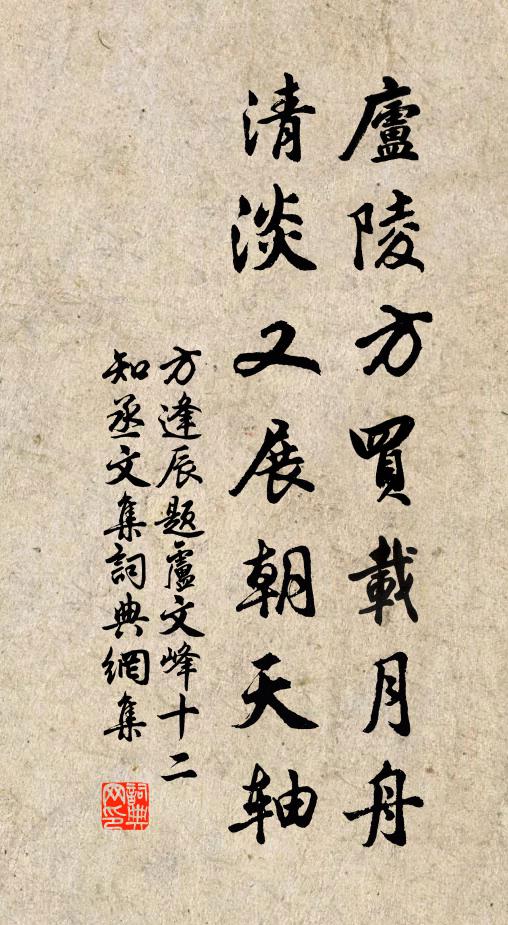 廬陵方買載月舟
清淡又展朝天軸
方逢辰題盧文峰十二
知丞文集詞典網集
詞典
网印